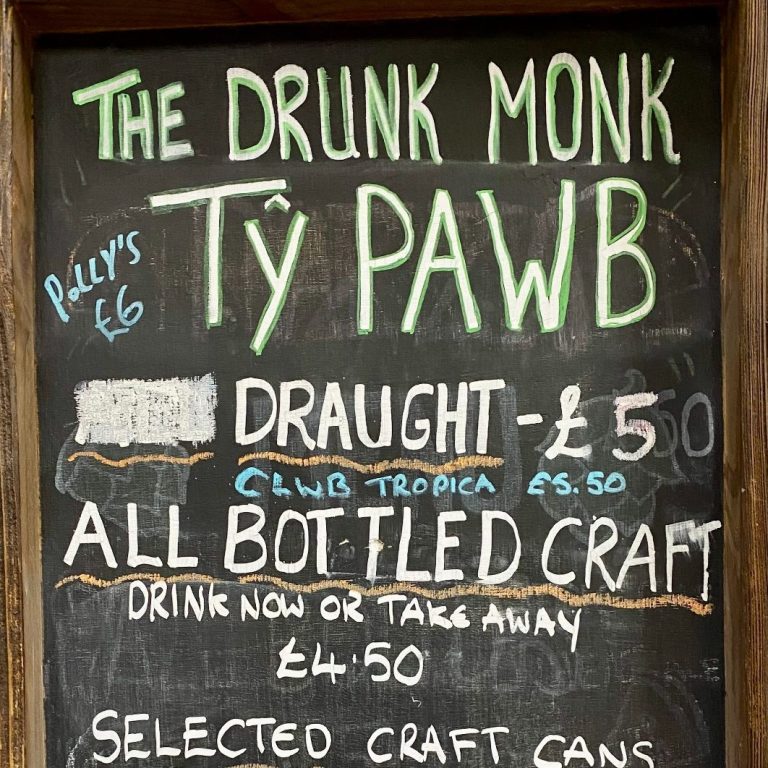 THE DRUNK MONK
TŷPAWB
POLLY'S
£6
DRAUGHT - £5
CLWB TROPICA £5.50
ALL BOTTLED CRAFT
DRINK NOW OR TAKE AWAY
£4.50
SELECTED CRAFT CANS